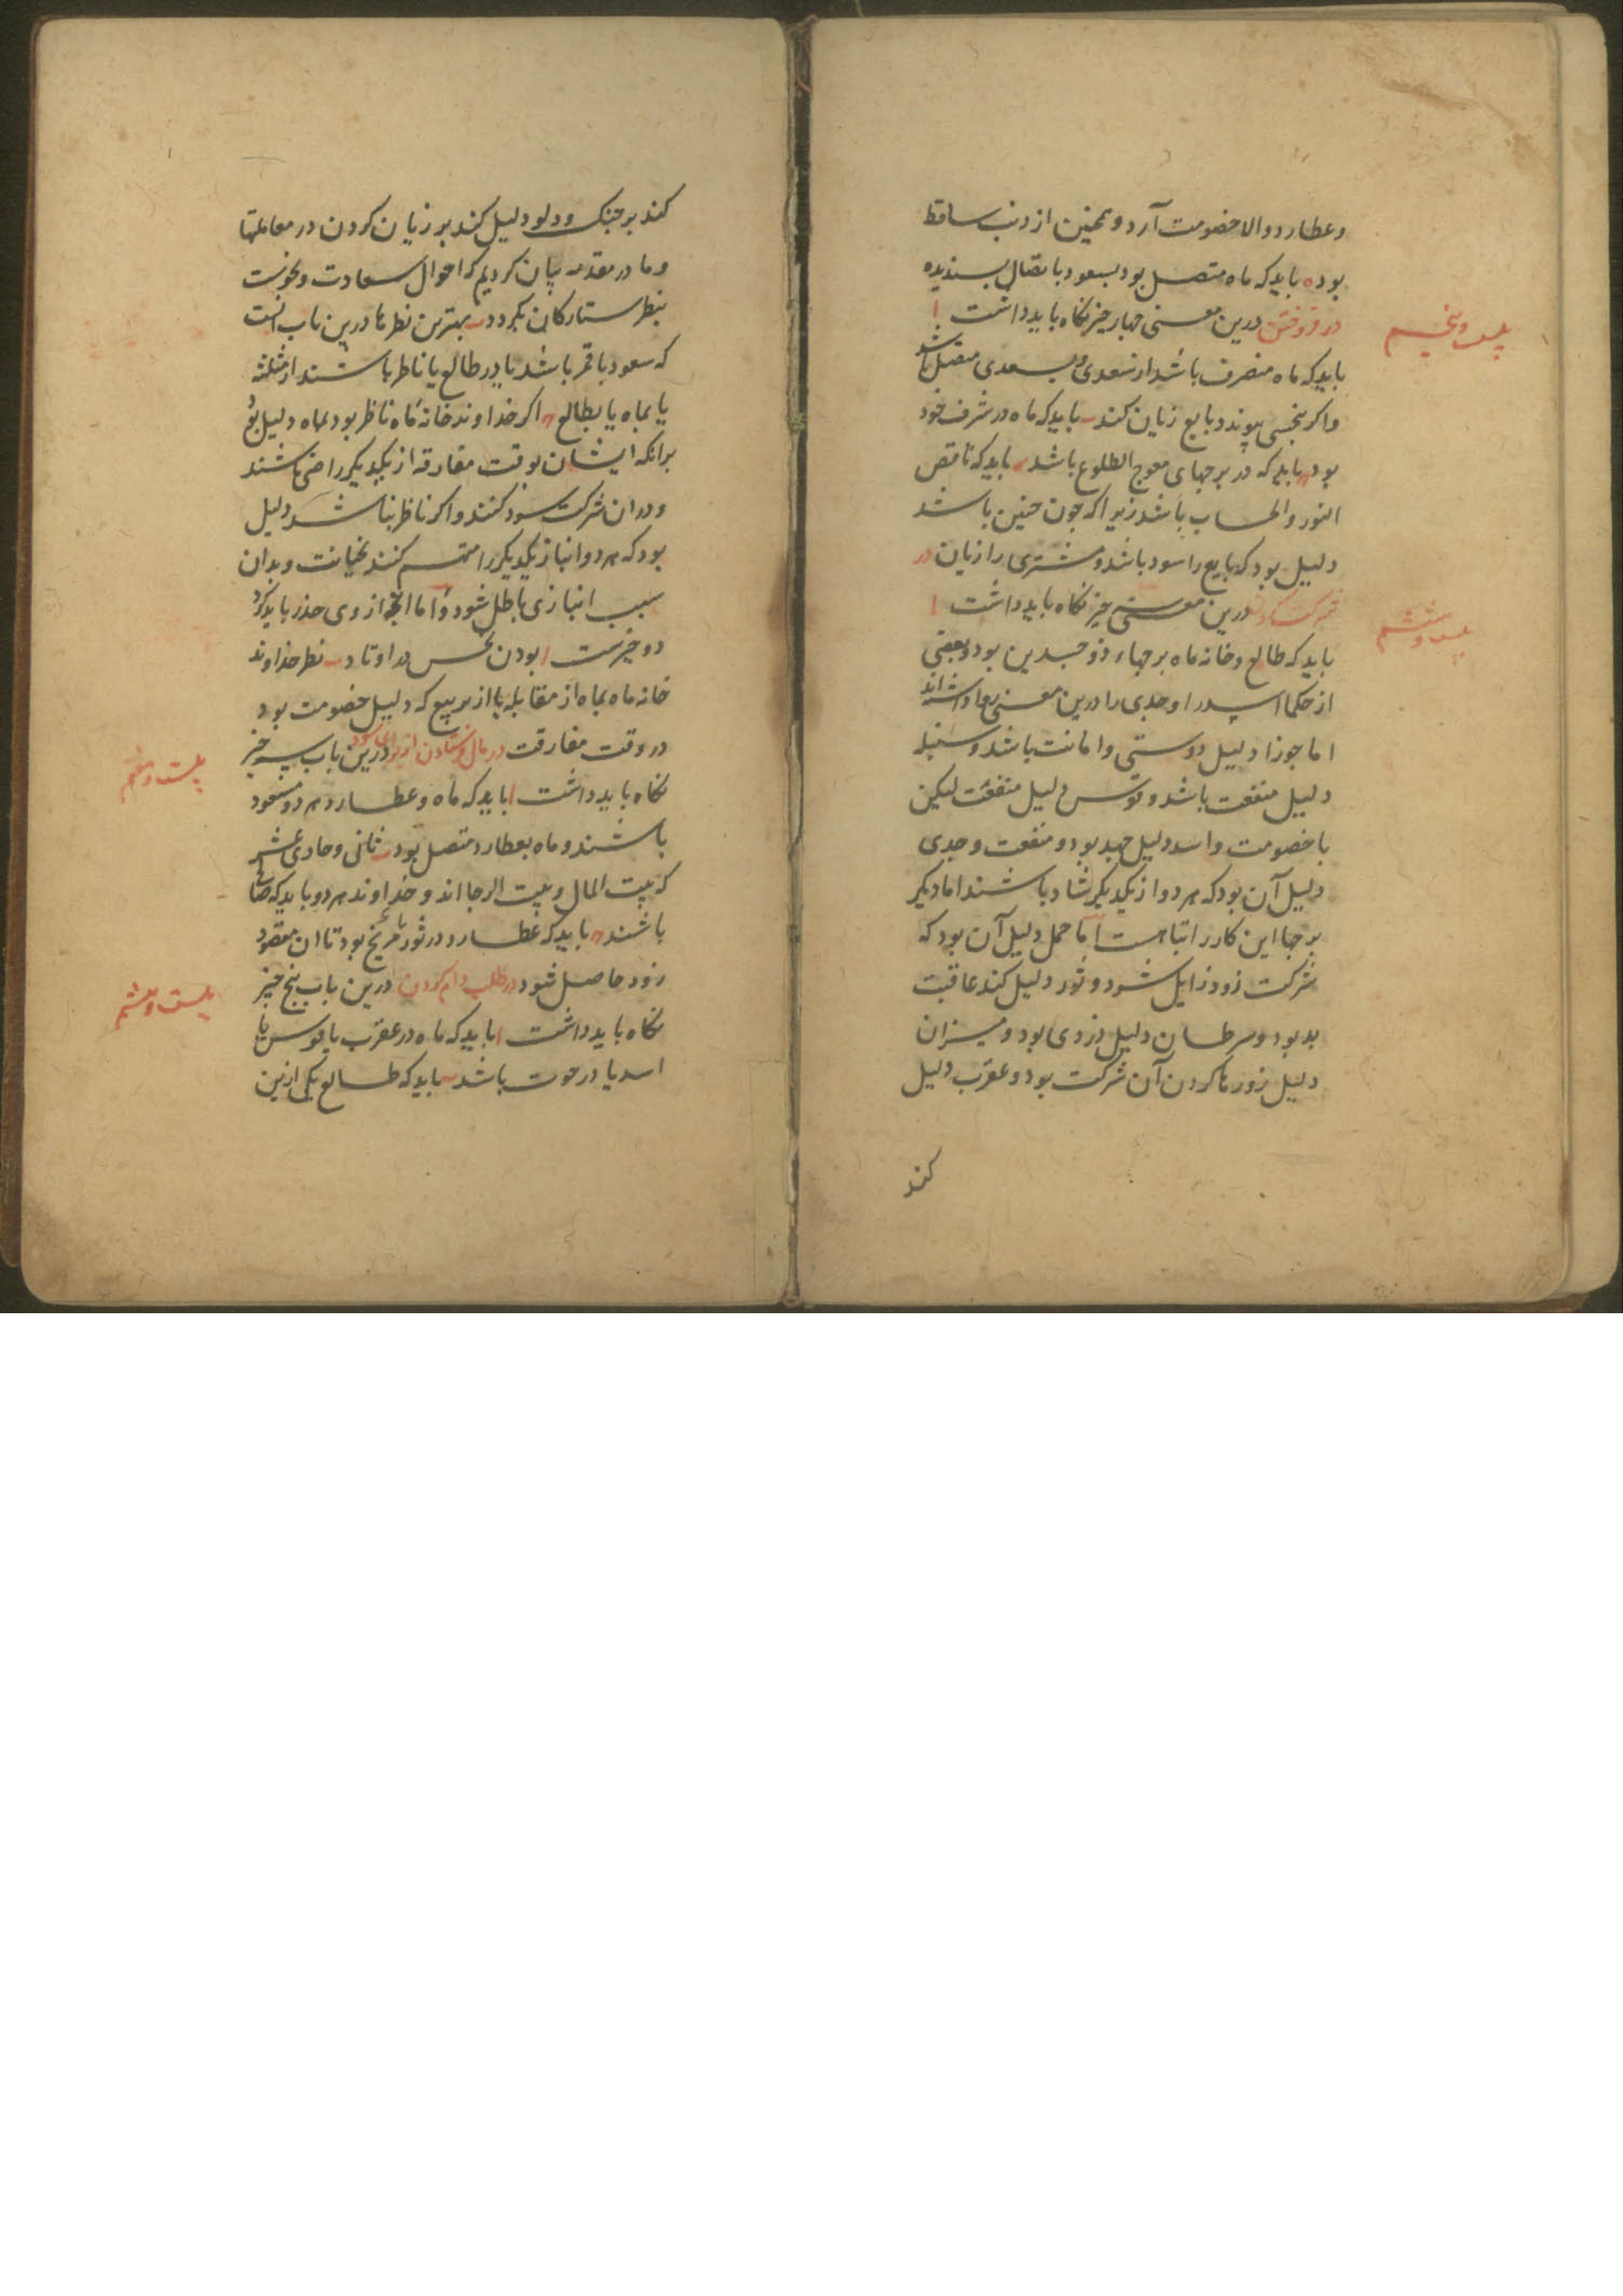 وعطارد والا خصومت آرد و همچنین از ذنب ساقط
بود ه باید که ماه متصل بود بسعود باتصال پسندیده
بیست وپنجم
در فروختن درین معنی چهار چیز نکاه باید داشت ا
باید که ماه منصرف باشد از سعدی وبسعدی متصل باشد
واکر بنحسی پیوندد بایع زیان کند ب باید که ماه در شرف خود
بود ج باید که در برجهای معوج الطلوع باشد د باید که ناقص
النور والحساب باشد زیرا که چون چنین باشد
دلیل بود که بایع را سود باشد ومشتری را زیان در
بیست وششم
شرکت کردن درین معنی چیز نکاه باید داشت ا
باید که طالع وخانه ماه برجهاء ذو جسدین بود وبعضی
از حکما اسد را وجدی را درین معنی روا داشته اند
اما جوزا دلیل دوستی وامانت باشد وسنبله
دلیل منفعت باشد وقوس دلیل منفعت لیکن
باخصومت واسد دلیل جهد بود ومنفعت وجدی
دلیل آن بود که هر دو از یکدیکر شاد باشند اما دیکر
برجها این کار را تباهست اما حمل دلیل آن بود که
شرکت زود زایل شود وثور دلیل کند عاقبت
بد بود وسرطان دلیل دزدی بود ومیزان
دلیل زود رها کردن آن شرکت بود وعقرب دلیل
کند
کند بر جنک ودلو دلیل کند بر زیان کردن در معاملتها
وما در مقدمه بیان کردیم که احوال سعادت ونحوست
بنظر ستارکان بکردد ب بهترین نظرها درین باب آنست
که سعود باقمر باشد یا در طالع یا ناظر باشند از مثلثه
یا بماه یا بطالع ج اکر خداوند خانه ماه ناظر بود بماه دلیل بود
برانکه ایشان بوقت مفارقه از یکدیکر راضی باشند
ودران شرکت سود کنند واکر ناظر نباشد دلیل
بود که هر دو انباز یکدیکر را متهم کنند بخیانت وبدان
سبب انبازی باطل شود واما انچه از وی حذر باید کرد
دو چیزست ا بودن نحس در اوتاد ب نظر خداوند
خانه ماه بماه از مقابله یا از تربیع که دلیل خصومت بود
بیست وهفتم
در وقت مفارقت در مال فرستادن از برای سود درین باب سه چیز
نکاه باید داشت ا باید که ماه وعطارد هر دو مسعود
باشند وماه بعطارد متصل بود ب ثانی وحادی عشر
که بیت المال وبیت الرجا اند وخداوند هر دو باید که صالح
باشند ج باید که عطارد در ثور یا مریخ بود تا ان مقصود
بیست وهشتم
زود حاصل شود در طلب وام کردن درین باب پنج چیز
نکاه باید داشت ا باید که ماه در عقرب یا قوس یا
اسد یا در حوت باشد ب باید که طالع یکی ازین